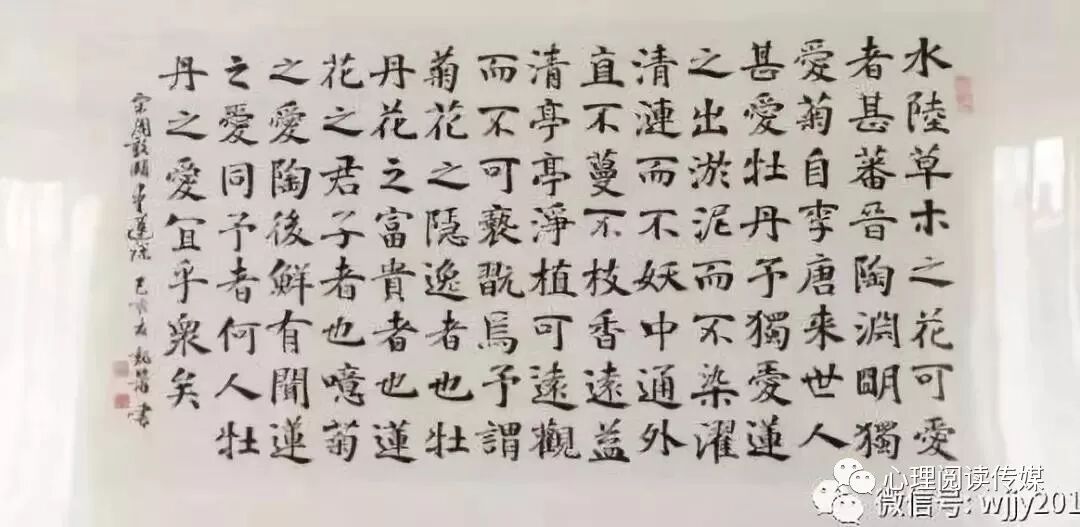 水陸草木之花可愛
者甚蕃晉陶淵明獨
愛菊自李唐來世人
甚愛牡丹予獨愛蓮
之出淤泥而不染濯
清漣而不妖中通外
直不蔓不枝香遠益
清亭亭淨植可遠觀
而不可褻翫焉予謂
菊花之隱逸者也牡
丹花之富貴者也蓮
花之君子者也噫菊
之愛陶後鮮有聞蓮
之愛同予者何人牡
丹之愛宜乎衆矣
宋周敦頤愛蓮說 己亥 書
心理阅读传媒
微信号: wjjy201